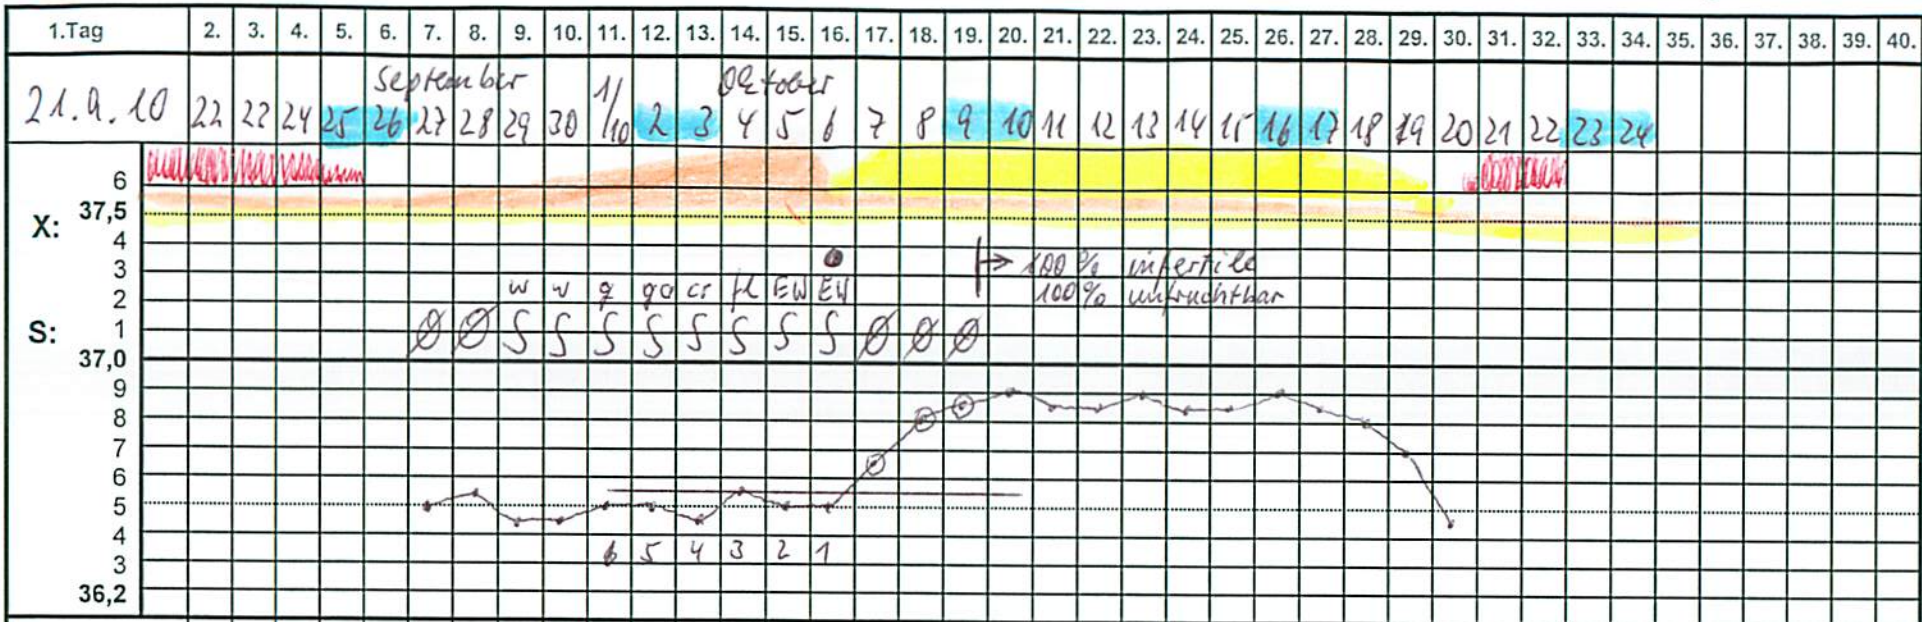 1.Tag 2. 3. 4. 5. 6. 7. 8. 9. 10. 11. 12. 13. 14. 15. 16. 17. 18. 19. 20. 21. 22. 23. 24. 25. 26. 27. 28. 29. 30. 31. 32. 33. 34. 35. 36. 37. 38. 39. 40.
September Oktober
21.9.10 22 23 24 25 26 27 28 29 30 1/10 2 3 4 5 6 7 8 9 10 11 12 13 14 15 16 17 18 19 20 21 22 23 24
6
X: 37,5
4
3 100% infertile
w w g ga cr fl EW EW
2 100% unfruchtbar
S: 1 Ø Ø S S S S S S S S Ø Ø Ø
37,0
9
8
7
6
5
4 6 5 4 3 2 1
3
36,2